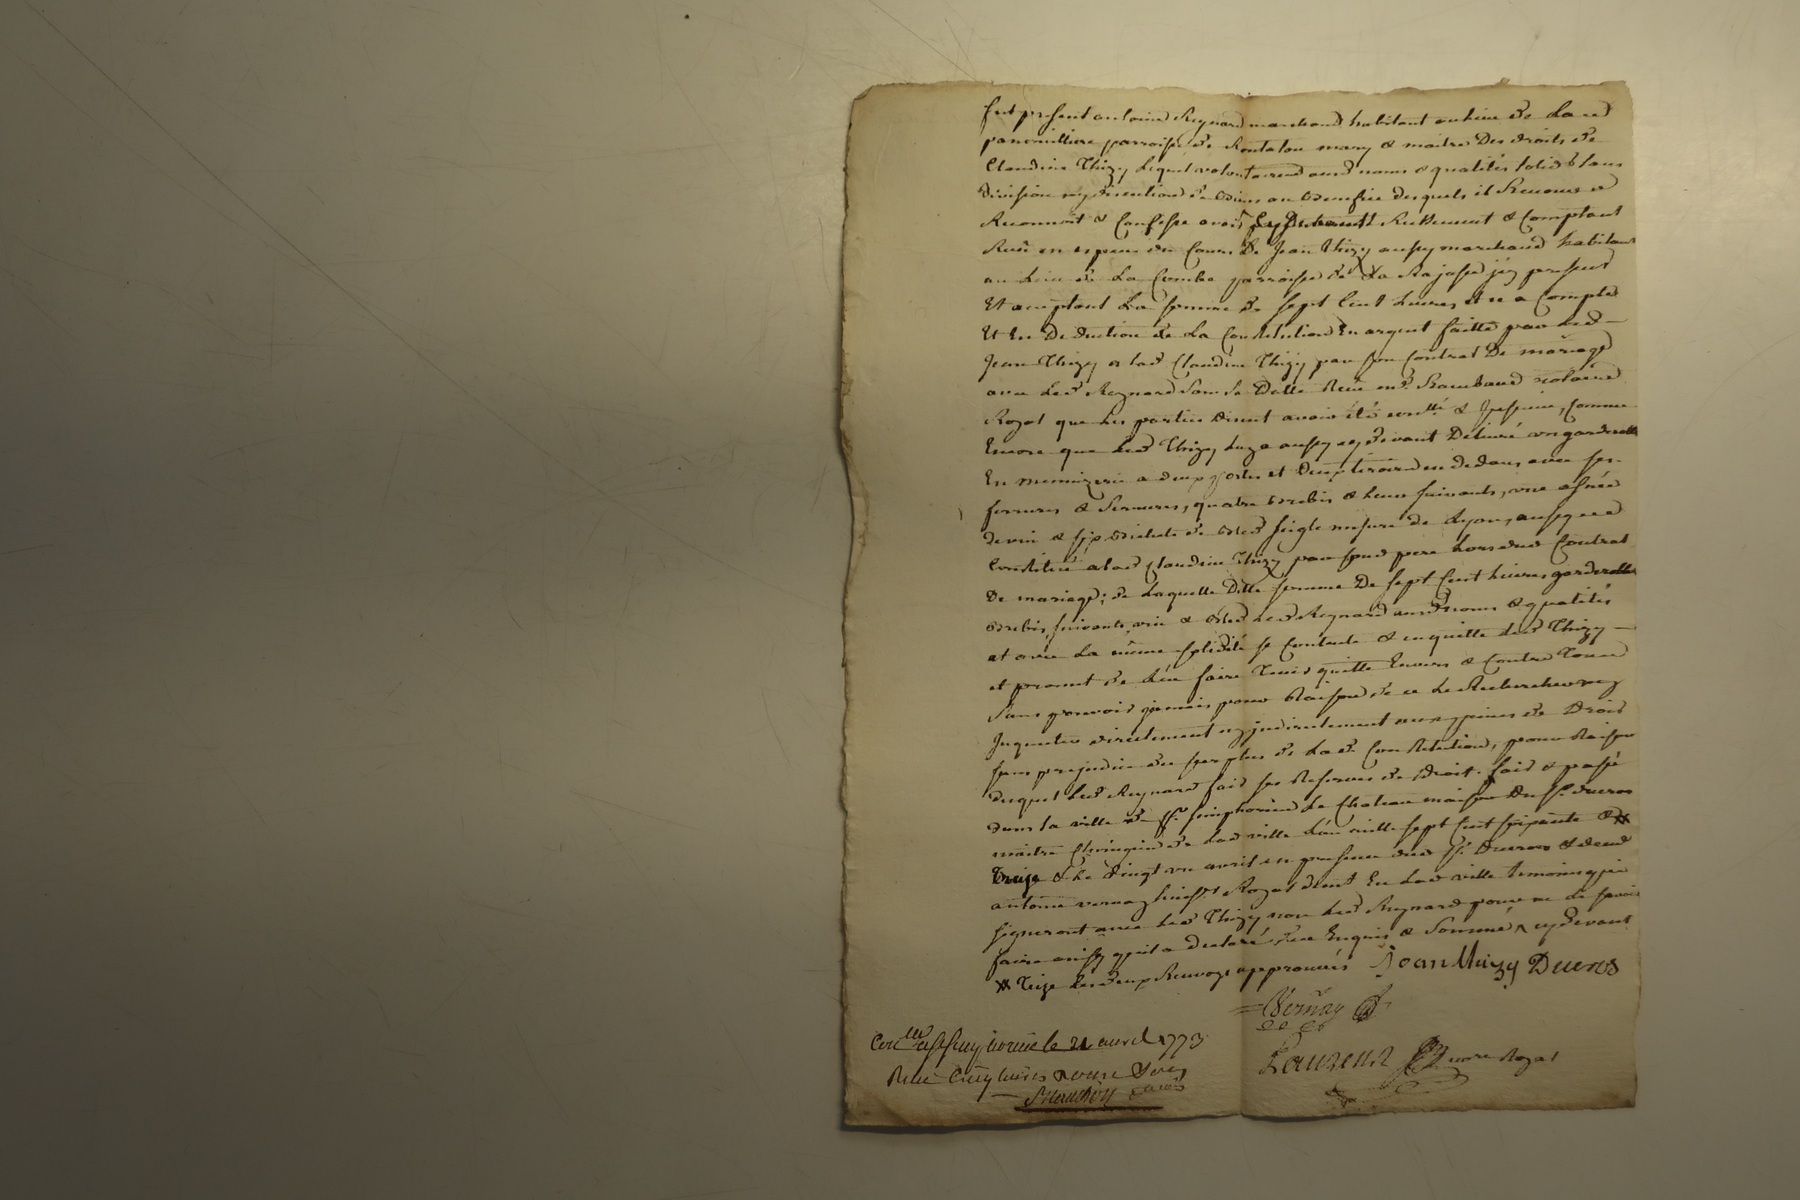 fut present antoine Reynard marchand habitant au lieu de la
parroisse de Rontalon mary & maitre Des droits de
Claudine Thizy lequel volontairem.t aud noms & qualités solid.t sans
division ny discution de biens au benefice desquels il Renonce a
Reconnoit & Confesse avoir cy Devant Reellement & Comptant
Receu en espece du Cours De Jean Thizy aussy marchand habitant
au lieu de La Combe parroisse de La Rajasse icy present
Et acceptant La somme de sept Cent livres, et ce a Compte
Et En Deduction de La Constitution En argent faitte par led
Jean Thizy a lad Claudine Thizy par son Contrat De mariage
avec led Reynard sous sa Datte Receu me Rambaud notaire
Royal que les parties disent avoir été conllé & Insinué, Comme
Encore que led Thizy luy a aussy cy devant Délivré un garderobe
En menuizerie a deux portes et deux tiroirs en dedans avec ses
ferrures & serrures, quatre brebis & leurs suivants, une asnée
de vin & six bichets de bled seigle mesure de Lyon, aussy
Constitué a lad Claudine Thizy par sond pere hors dud Contrat
De mariage; de laquelle Ditte somme De sept Cent livres garderobe
brebis, suivants, vin & bled led Reynard aud noms & qualités
et avec La même solidité se Contente & en quitte led Thizy
et promet de l'en faire tenir quitte Envers & Contre Tous
sans pouvoir jamais pour Raison de ce le Rechercher ny
Inquieter directement ny indirectement aux peines de Droit
sans prejudice du surplus de lade Constitution, pour Raison
duquel led Reynard fait ses Reserves de droit. fait & passé
dans la ville de St simphorien Le Chateau maison Du Sr ducros
maitre Chirurgien de lad ville L'an mille sept Cent soixante &
Treize & le vingt un avril en presence dud Sr Ducros & de
antoine vernay huissr Royal dem.t En lad ville temoins qui
signeront avec led Thizy non led Reynard pour ne le savoir
faire ainsy qu'il a declaré de ce Enquis & sommé cy devant
Treize les deux Renvoys approuvés Jean Thizy Ducros
Vernay
Laurent nore Royal
Conllé a st simphorien le 21 avril 1773
Receu livres